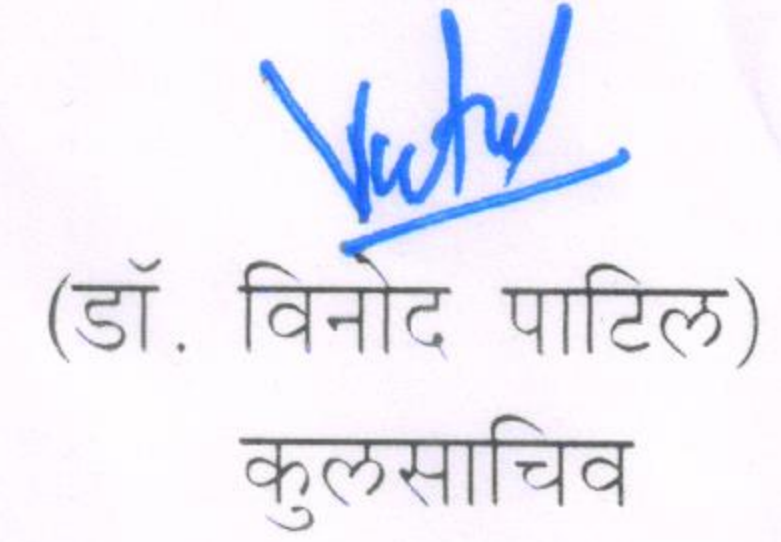 (डॉ. विनोद पाटिल)
कुलसाचिव